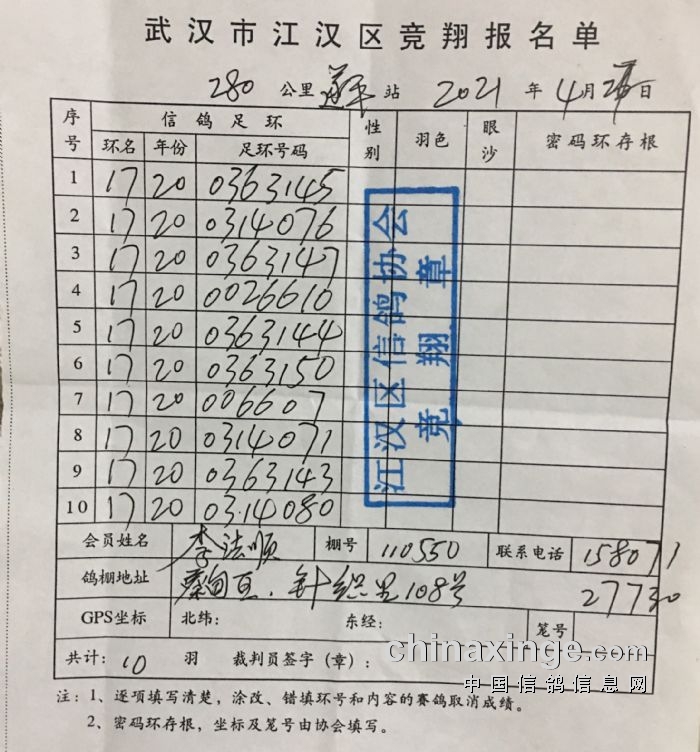 武汉市江汉区竞翔报名单
280 公里 站 2021 年 4月 日
序号 信鸽足环 性别 羽色 眼沙 密码环存根
环名 年份 足环号码
1 17 20 0363145
2 17 20 0314076
3 17 20 0363147
4 17 20 0026610
5 17 20 0363144
6 17 20 0363150
7 17 20 006607
8 17 20 0314071
9 17 20 0363143
10 17 20 0314080
江汉区信鸽协会
竞翔章
会员姓名 李法顺 棚号 110550 联系电话 158071
鸽棚地址 针织里108号 27730
GPS坐标 北纬: 东经: 笼号
共计: 10 羽 裁判员签字(章):
chinaxinge.com
中国信鸽信息网
注:1、逐项填写清楚,涂改、错填环号和内容的赛鸽取消成绩。
2、密码环存根,坐标及笼号由协会填写。